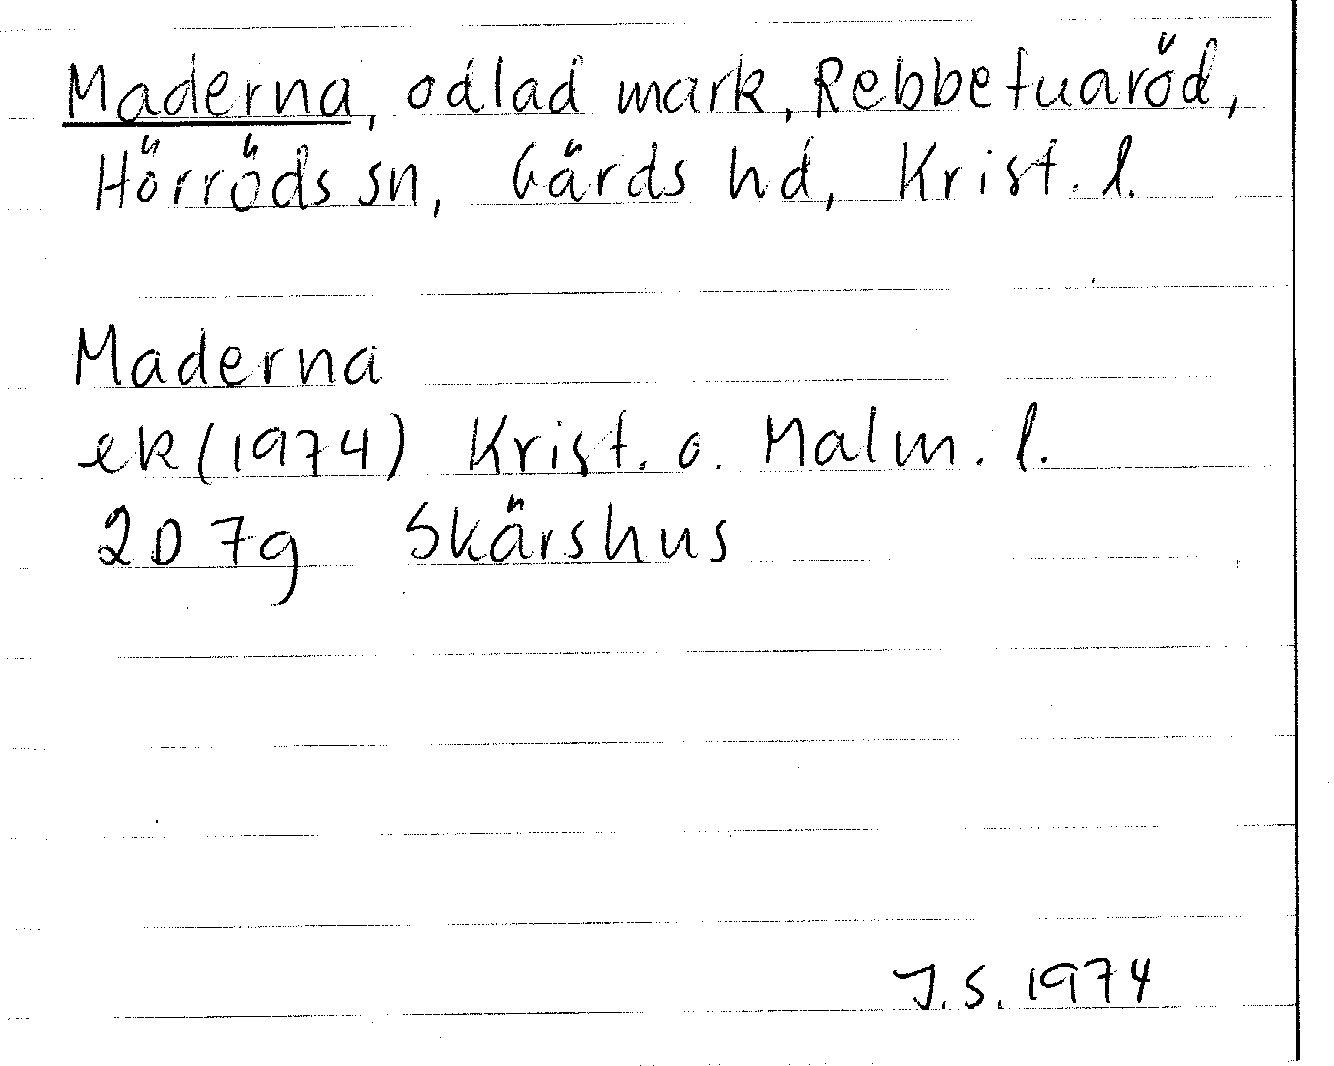 Maderna, odlad mark, Rebbetuaröd,
Hörröds sn, Gärds hd, Krist. l.
Maderna
ek (1974) Krist. o. Malm. l.
2D 7g Skärshus
J.S. 1974